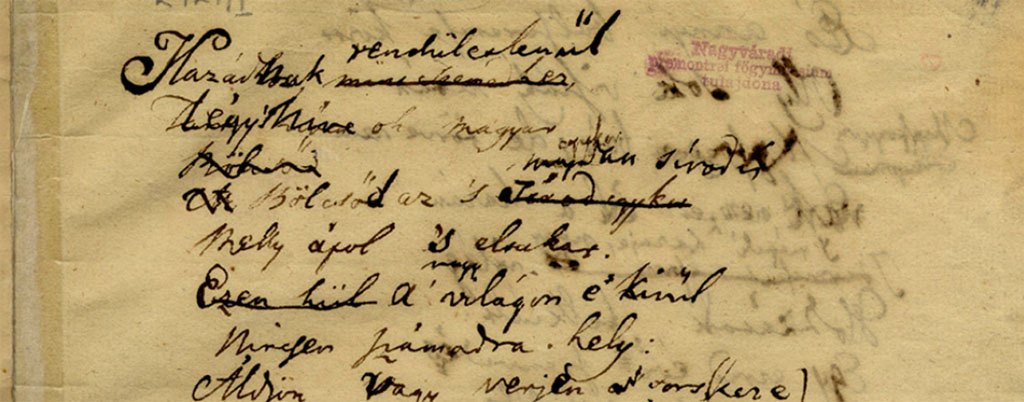 rendületlenűl
Hazádnak
Légy híve oh magyar
Bölcsőd az 's
majdan sírod is
Melly ápol 's eltakar.
Ezen kül A' nagy világon e' kivűl
Nincsen számodra hely:
Áldjon vagy verjen a' sors keze
Nagyváradi
premontrei főgymnasium
tulajdona